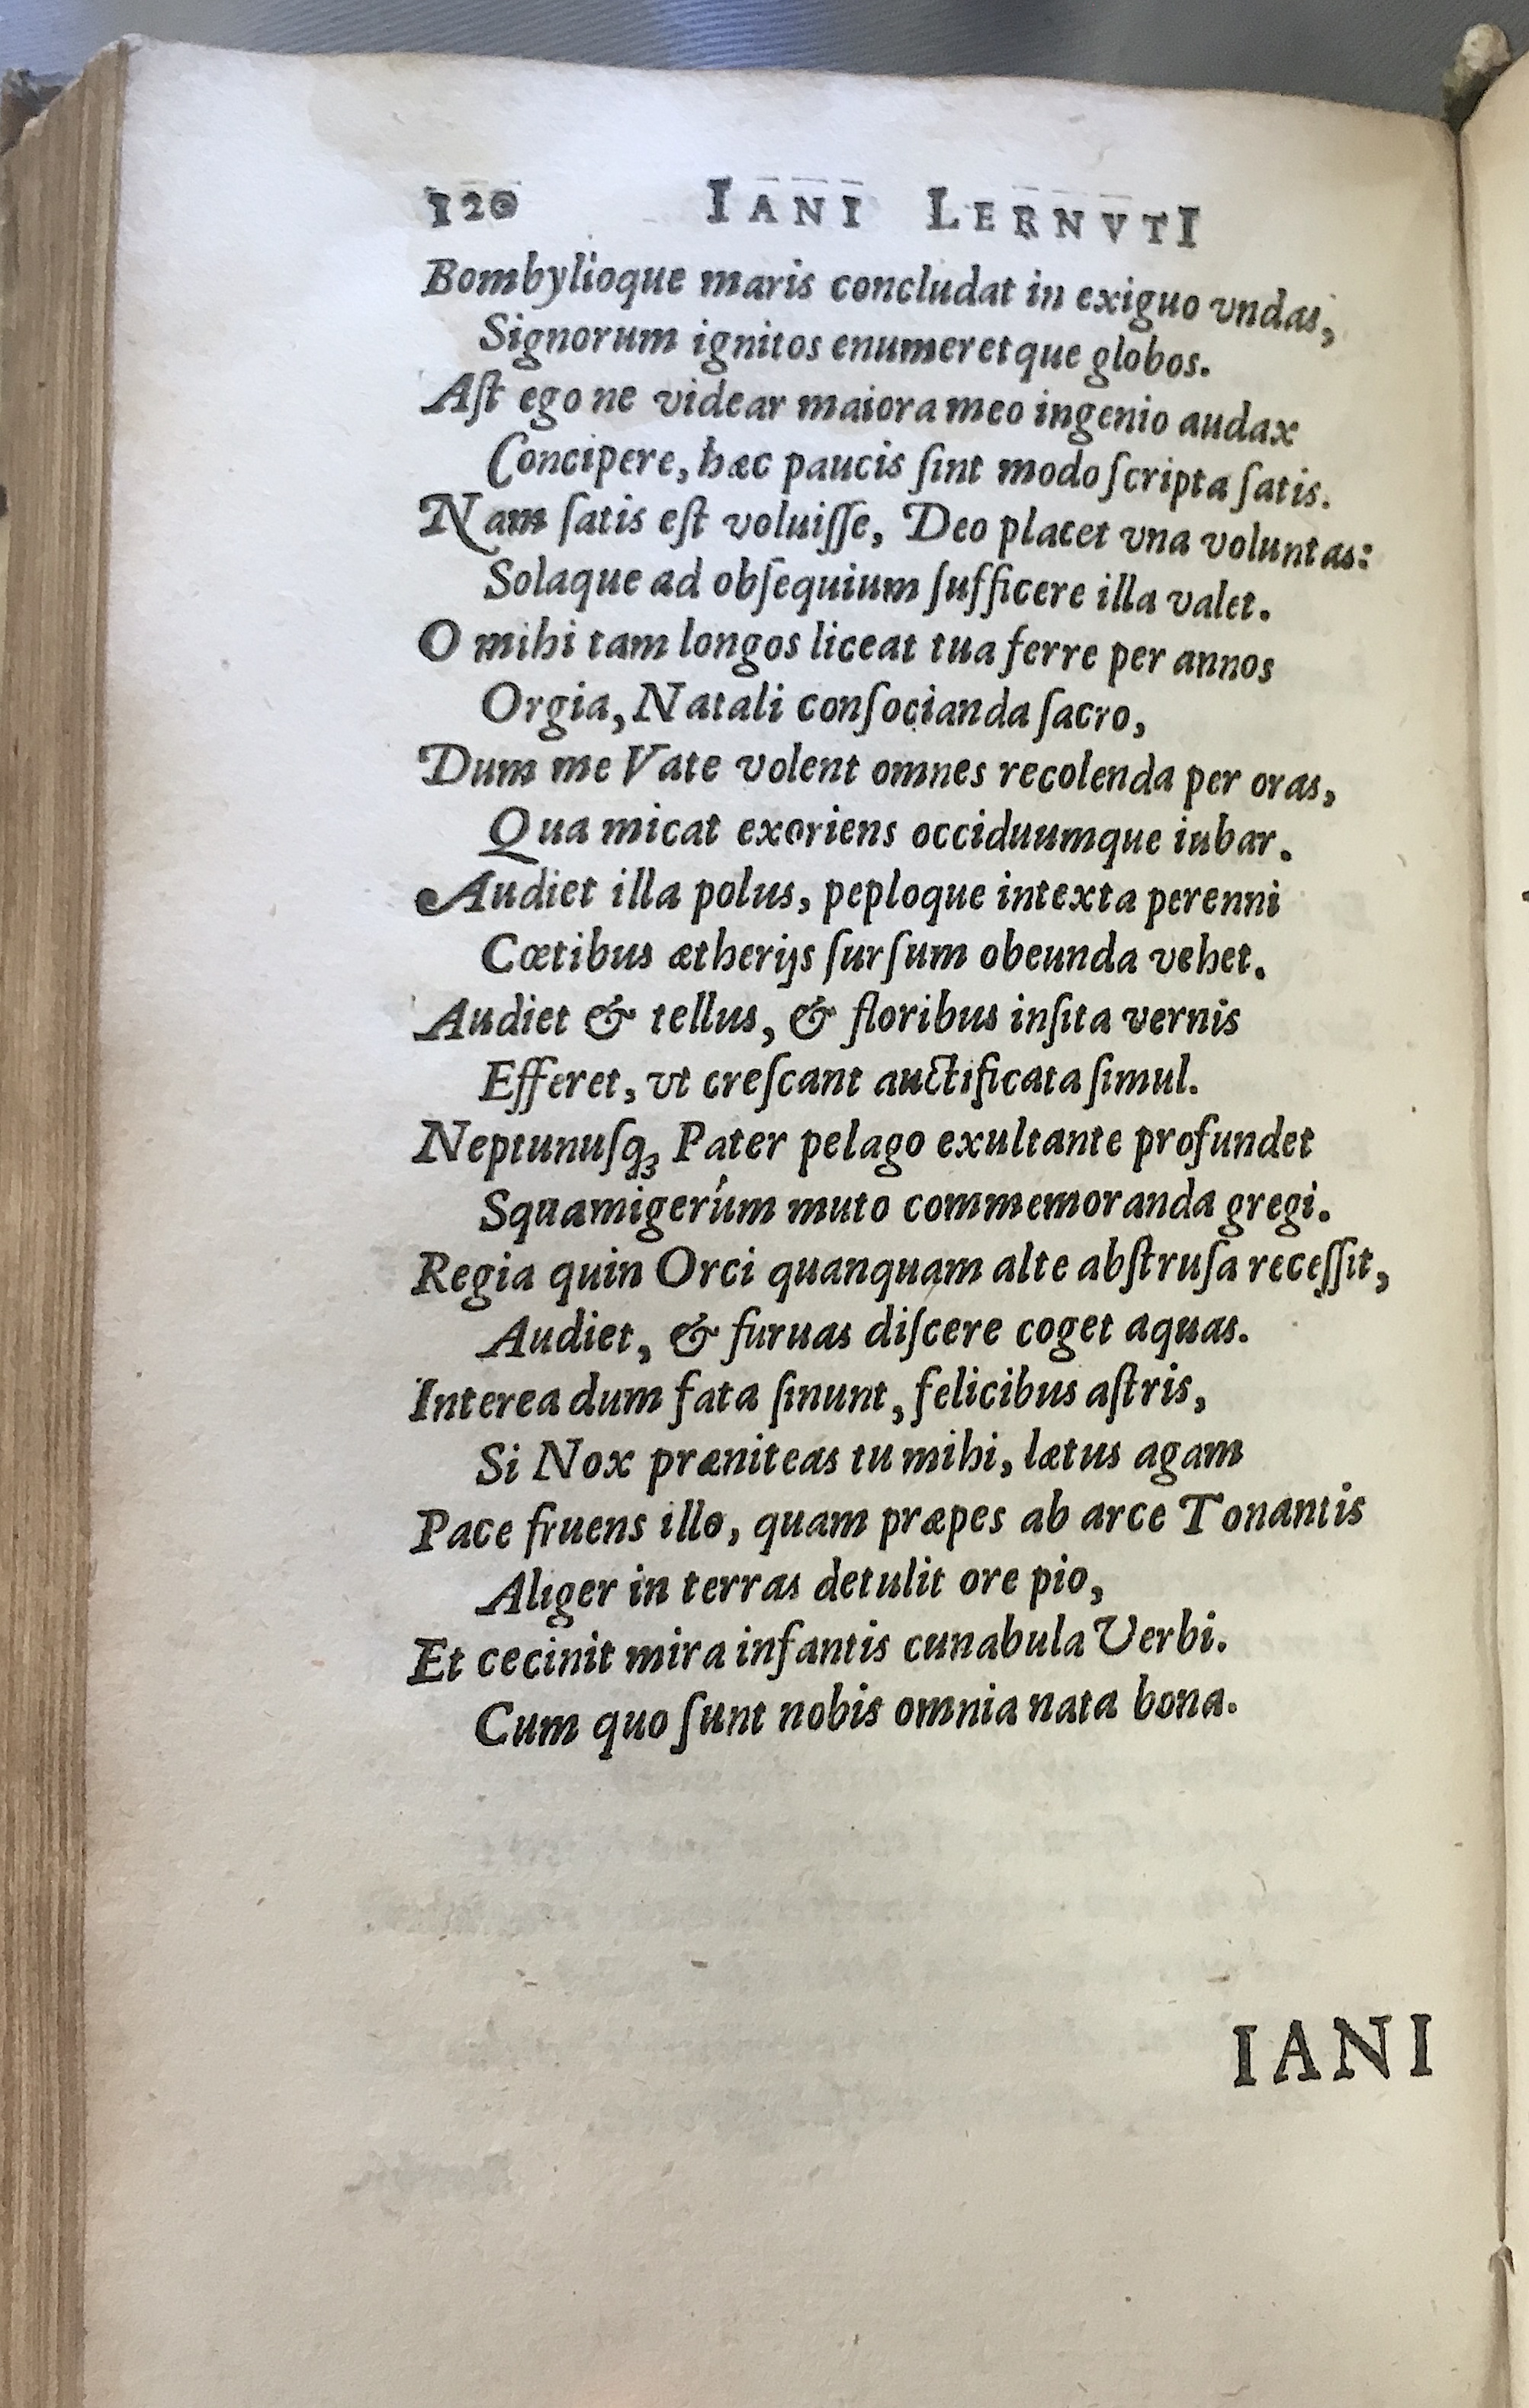 120 IANI LERNVTI
Bombylioque maris concludat in exiguo vndas,
Signorum ignitos enumeretque globos.
Aſt ego ne videar maiora meo ingenio audax
Concipere, hæc paucis ſint modo ſcripta ſatis.
Nam ſatis eſt voluiſſe, Deo placet vna voluntas:
Solaque ad obſequium ſufficere illa valet.
O mihi tam longos liceat tua ferre per annos
Orgia, Natali conſocianda ſacro,
Dum me Vate volent omnes recolenda per oras,
Qua micat exoriens occiduumque iubar.
Audiet illa polus, peploque intexta perenni
Cœtibus ætherijs ſurſum obeunda vehet.
Audiet & tellus, & floribus inſita vernis
Efferet, vt creſcant auctificata ſimul.
Neptunuſqꝫ Pater pelago exultante profundet
Squamigerúm muto commemoranda gregi.
Regia quin Orci quanquam alte abſtruſa receſſit,
Audiet, & furuas diſcere coget aquas.
Interea dum fata ſinunt, felicibus aſtris,
Si Nox præniteas tu mihi, lætus agam
Pace fruens illo, quam præpes ab arce Tonantis
Aliger in terras detulit ore pio,
Et cecinit mira infantis cunabula Verbi.
Cum quo ſunt nobis omnia nata bona.
IANI